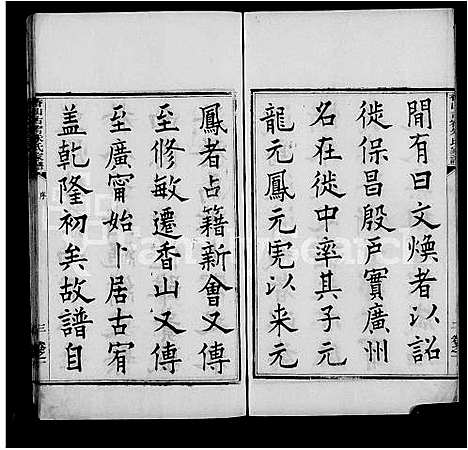 間有曰文煥者以詔
徙保昌殷戶實廣州
名在徙中率其子元
龍元鳳元宪以来元
鳳者占籍新會又傳
至修敏遷香山又傳
至廣甯始卜居古宥
蓋乾隆初矣故譜自
序
三
卷之一